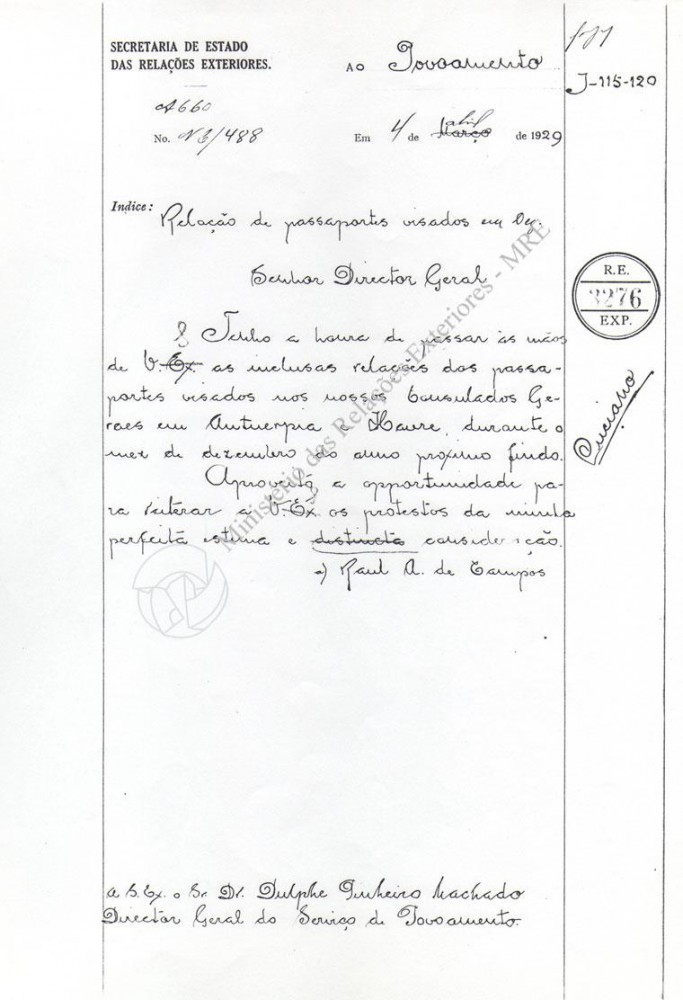 SECRETARIA DE ESTADO
DAS RELAÇÕES EXTERIORES.
AO Povoamento
J-115-120
A660
No. N3/488
Em 4 de Março abril de 1929
Indice: Relação de passaportes visados em Dez.
Senhor Director Geral
R.E.
3276
EXP.
Tenho a honra de passar ás mãos
de V. Ex. as inclusas relações dos passa-
portes visados nos nossos Consulados Ge-
raes em Antuerpia e Havre, durante o
mez de dezembro do anno proximo findo.
Luciano
Aproveito a opportunidade pa-
ra reiterar a V. Ex. os protestos da minha
perfeita estima e distincta consideração.
a) Raul A. de Campos
Ministério das Relações Exteriores - MRE
A S. Ex. o Sr. Dr. Dulphe Pinheiro Machado
Director Geral do Serviço de Povoamento.